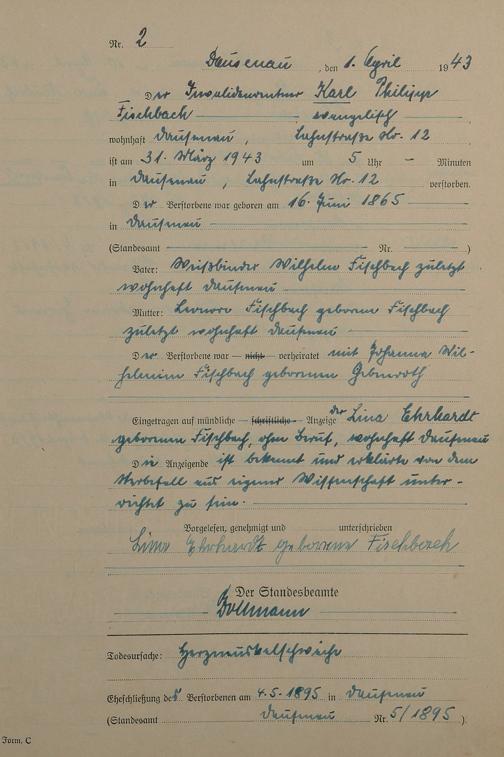 Nr. 2
Dausenau, den 1. April 1943
Der Invalidenrentner Karl Philipp
Fischbach — evangelisch
wohnhaft Dausenau, Lahnstraße Nr. 12
ist am 31. März 1943 um 5 Uhr — Minuten
in Dausenau, Lahnstraße Nr. 12 verstorben.
Der Verstorbene war geboren am 16. Juni 1865
in Dausenau
(Standesamt — Nr. —)
Vater: Weißbinder Wilhelm Fischbach zuletzt
wohnhaft Dausenau
Mutter: Leonore Fischbach geborene Fischbach
zuletzt wohnhaft Dausenau
Der Verstorbene war — nicht — verheiratet mit Johanna Wil-
helmine Fischbach geborenen
Eingetragen auf mündliche — schriftliche — Anzeige der Lina Ehrhardt
geborenen Fischbach, ohne Beruf, wohnhaft Dausenau
Die Anzeigende ist bekannt und erklärte von dem
Sterbefall aus eigener Wissenschaft unter-
richtet zu sein.
Vorgelesen, genehmigt und unterschrieben
Lina Ehrhardt geborene Fischbach
Der Standesbeamte
Todesursache: Herzmuskelschwäche
Eheschließung des Verstorbenen am 4.5.1895 in Dausenau
(Standesamt Dausenau Nr. 5/1895)
Form. C